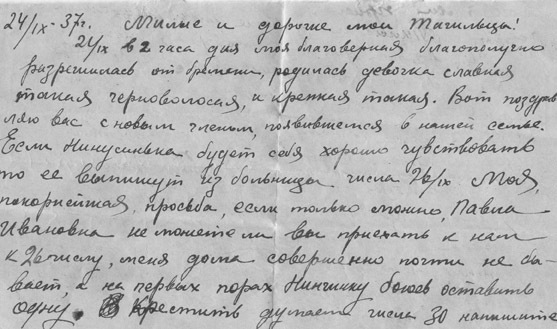 24/IX-37г. Милые и дорогие мои Тагильцы!
24/IX в 2 часа дня моя благоверная благополучно
разрешилась от бремени, родилась девочка славная
такая черноволосая, и крепкая такая. Вот поздрав
ляю вас с новым членом, появившемся в нашей семье.
Если Нинусинька будет себя хорошо чувствовать
то ее выпишут из больницы числа 26/IX Моя
покорнейшая просьба, если только можно, Павла
Ивановна не можете ли вы приехать к нам
к 26 числу, меня дома совершенно почти не бы-
вает, а на первых порах Ниночку боюсь оставить
одну. Крестить думаем числа 30 напишите